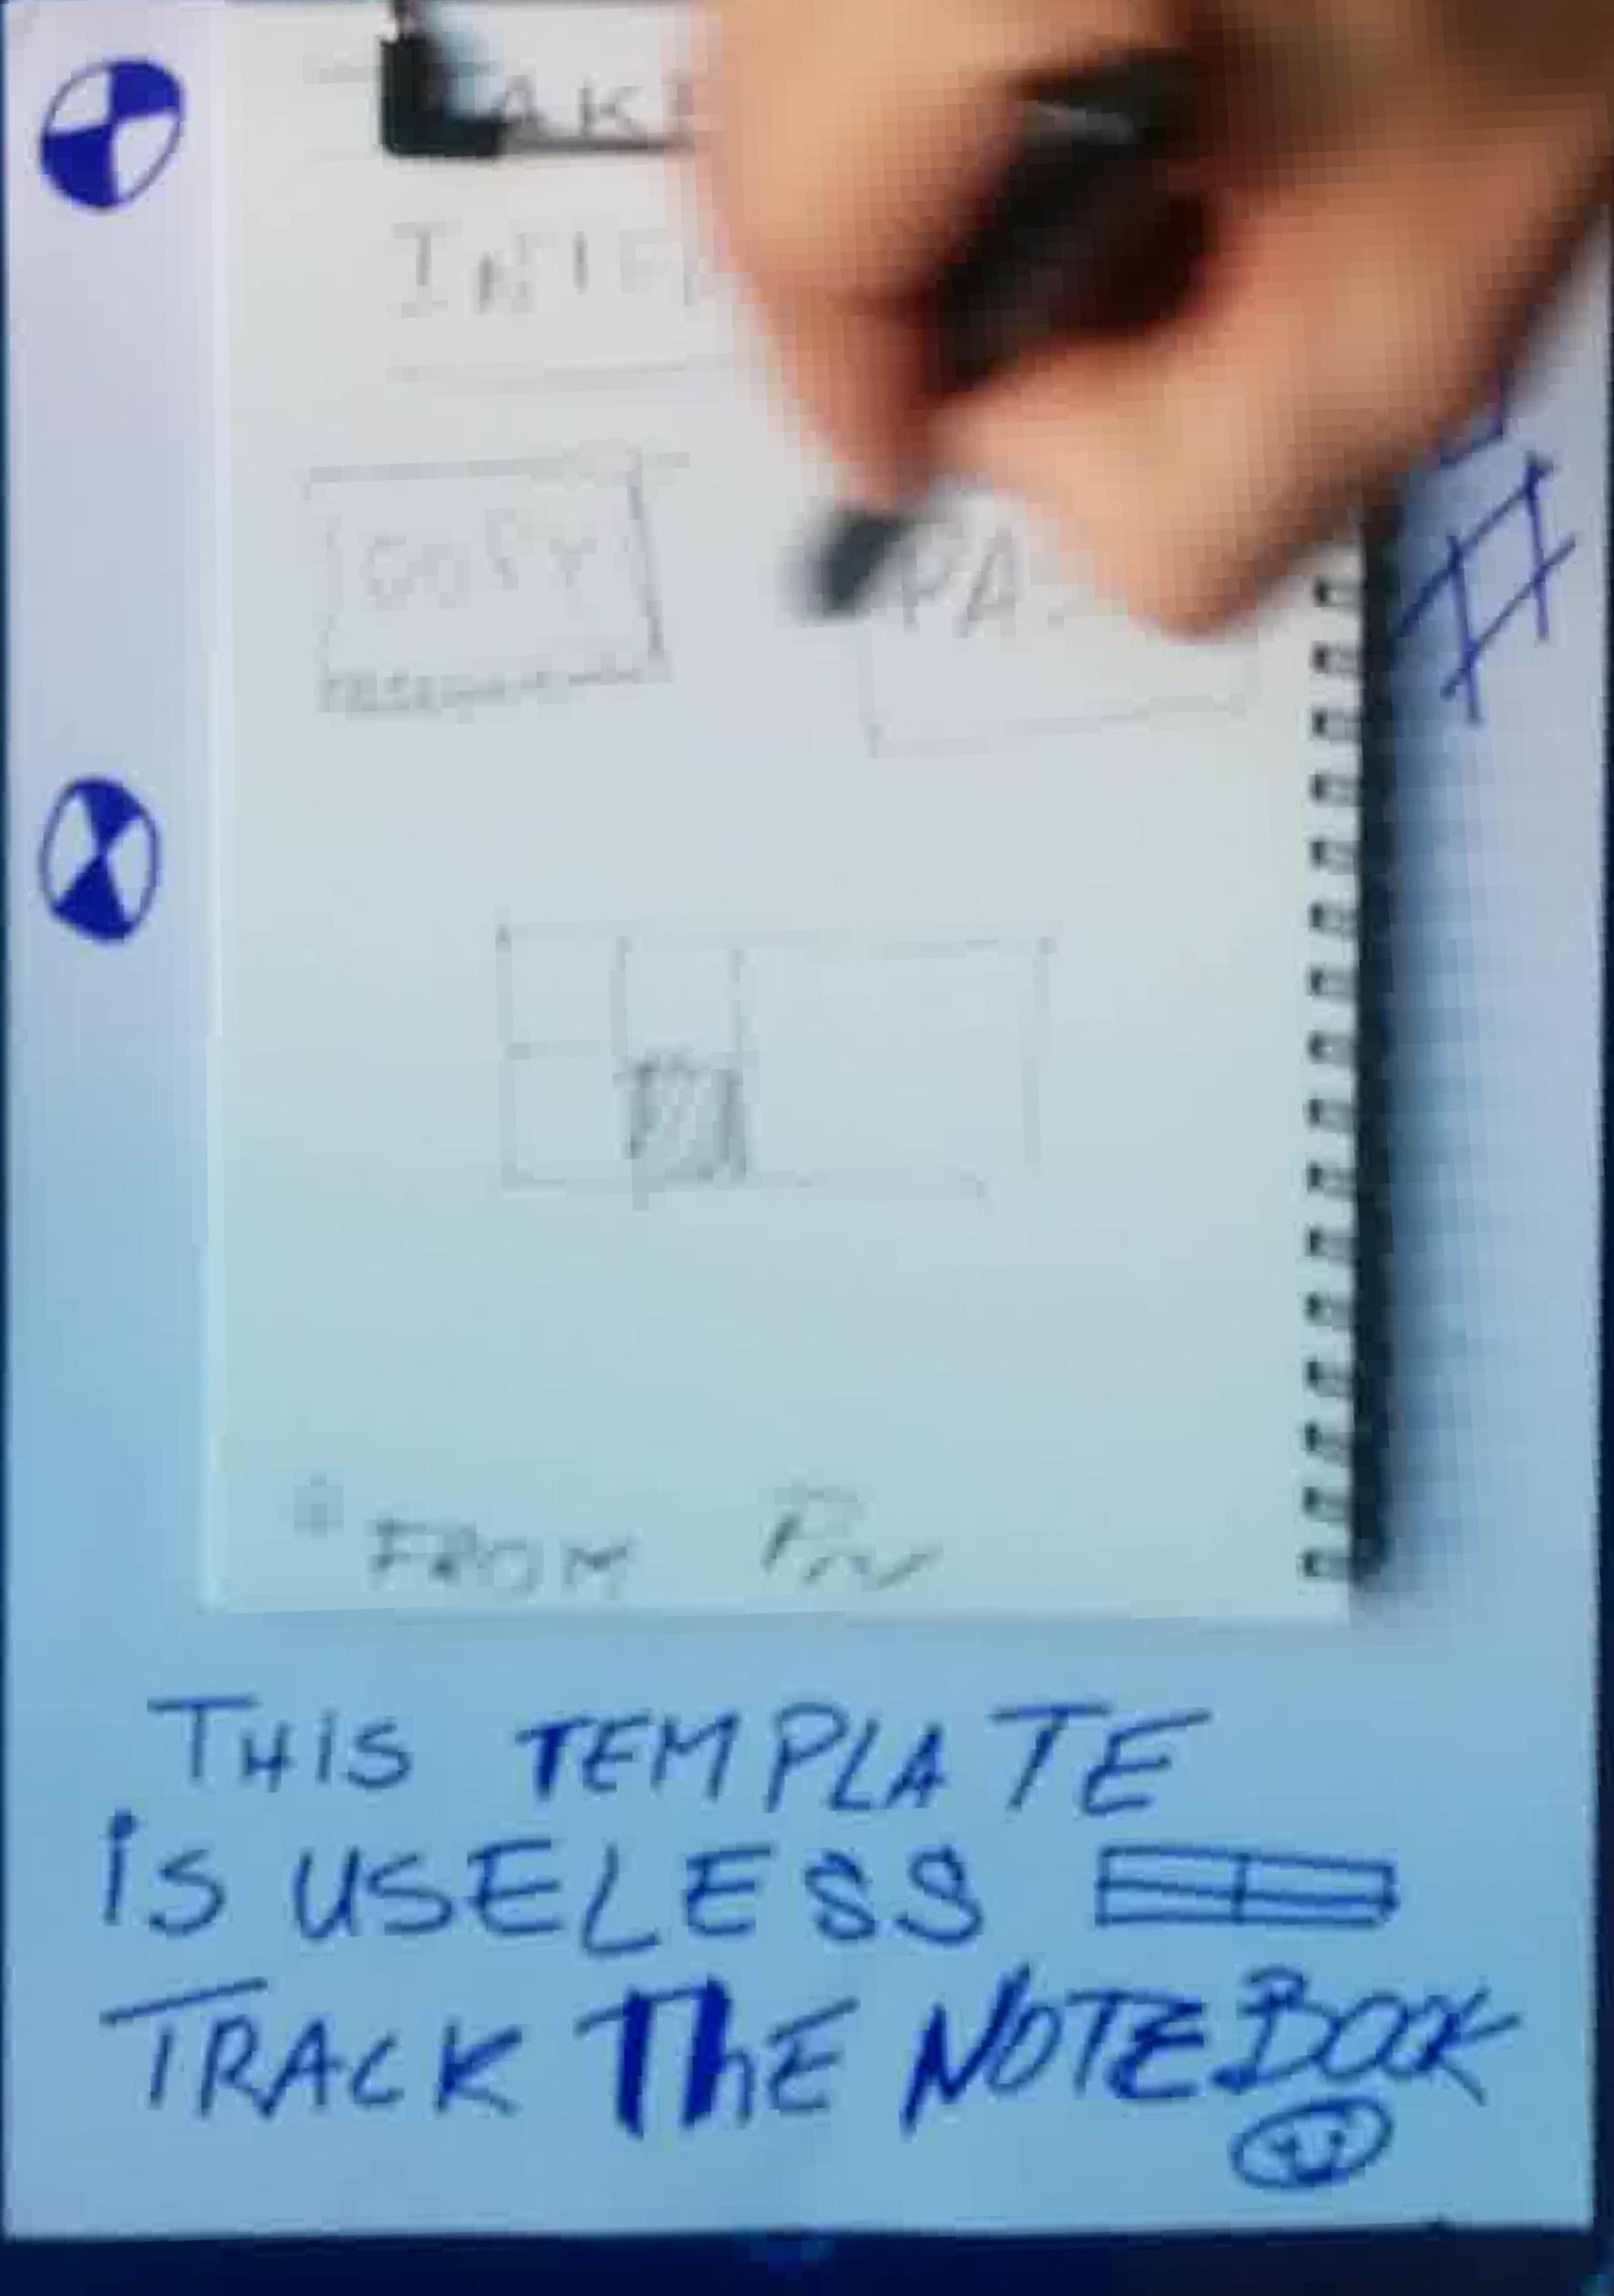 COPY PA
FROM
THIS TEMPLATE
iS USELESS
TRACK ThE NOTEBOOK